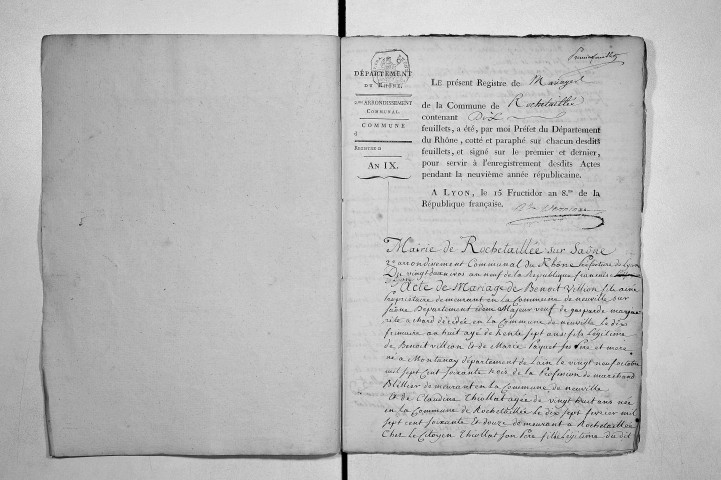 DÉPARTEMENT
DU RHÔNE.
ARRONDISSEMENT
COMMUNAL.
COMMUNE
d
REGISTRE D
AN IX.
LE présent Registre de Mariages
de la Commune de Rochetaillée
contenant Dix
feuillets, a été, par moi Préfet du Département
du Rhône, cotté et paraphé sur chacun desdits
feuillets, et signé sur le premier et dernier,
pour servir à l'enregistrement desdits Actes
pendant la neuvième année républicaine.
A LYON, le 15 Fructidor an 8.me de la
République française.
Mairie de Rochetaillée sur Saône
2e arrondissement Communal du Rhône préfecture de Lyon
Du vingt deux nivos an neuf de la Republique francaise
Acte de Mariage de Benoit Villion fils aine
propriétaire demeurant en la Commune de neuville sur
Saône Departement idem Majeur veuf de gasparde margue
rite achard décédée en la Commune de neuville le dix
frimaire an huit agé de trente sept ans fils Légitime
de Benoit villion et de Marie paquet ses père et mere
né a Montanay département de Lain le vingt neuf octobre
mil sept Cent Soixante trois de la Profession de marchand
Blattier demeurant en la Commune de neuville
et de Claudine Thiollat agée de vingt huit ans née
en la Commune de Rochetaillée le dix sept fevrier mil
sept cent soixante et douze demeurant a Rochetaillée
Chez le Citoyen Thiollat son Père fille Légitime du dit